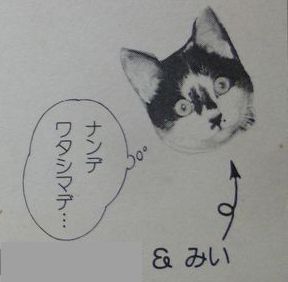 ナンデ
ワタシマデ…
& みい